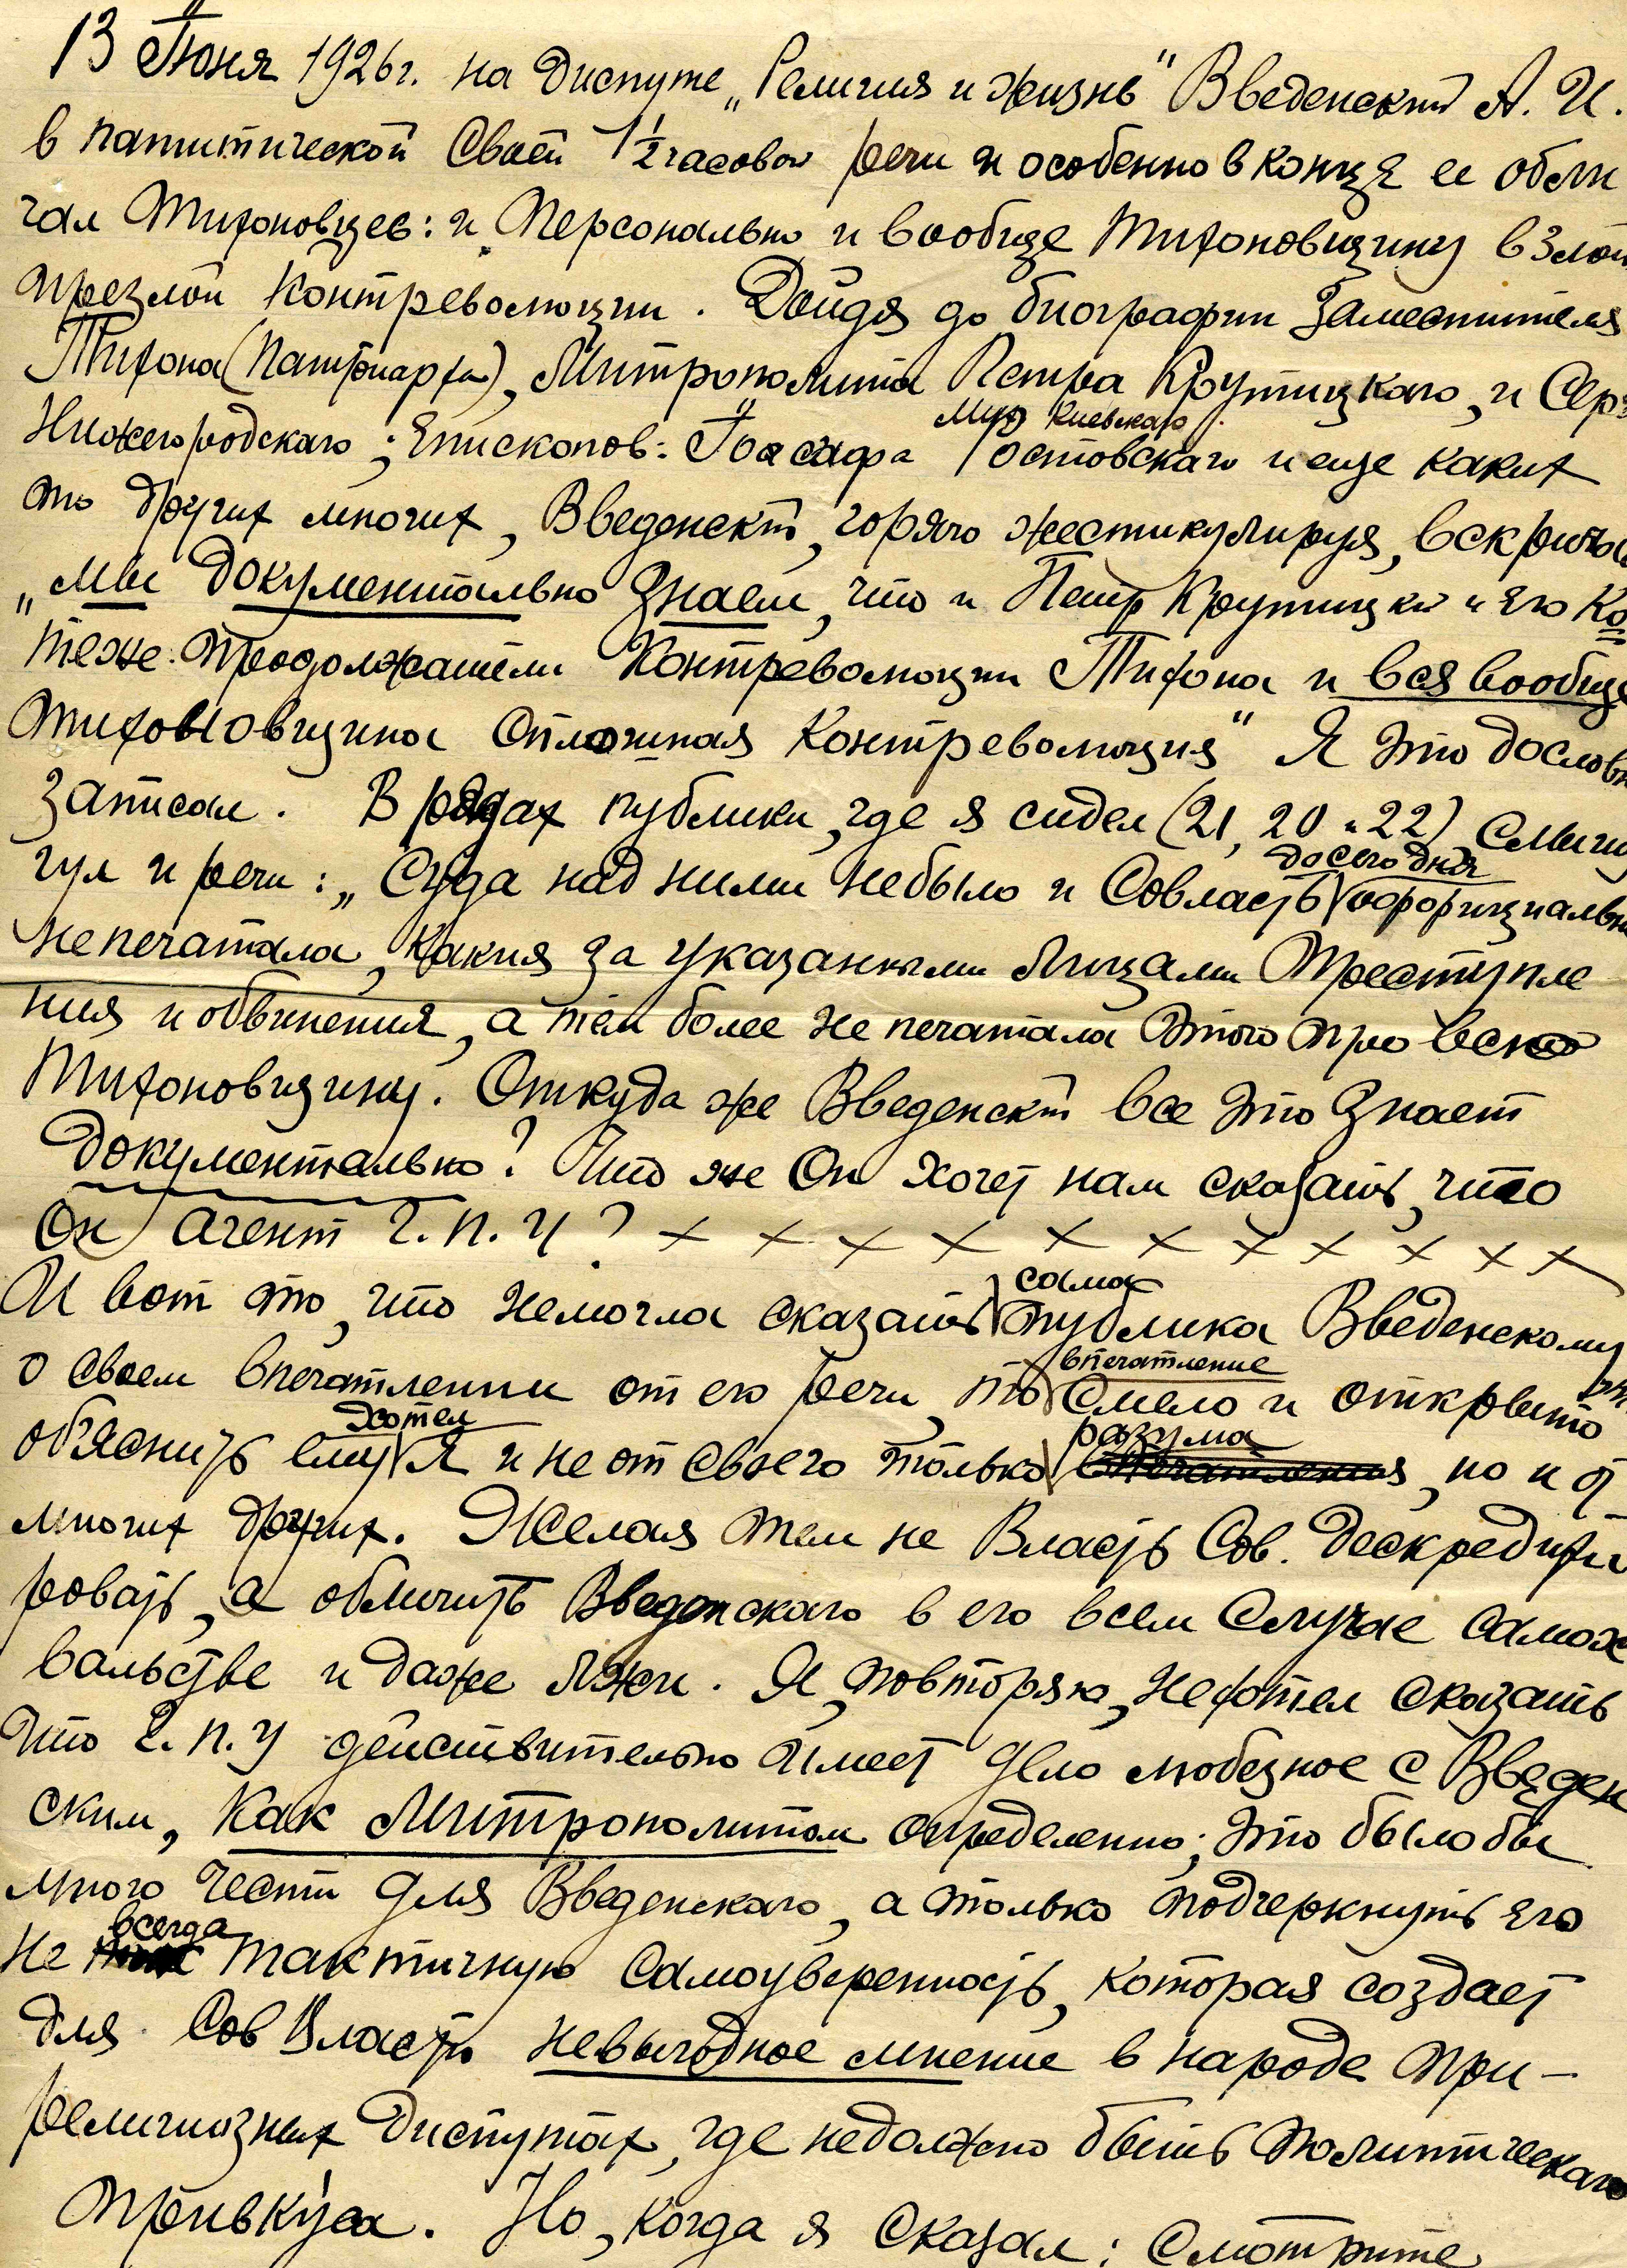 13 Іюня 1926 г. на Диспуте „Религия и жизнь" Введенскій А. И.
в патитической Своей 1½ часовой речи и особенно в конце ее обли
чал Тихоновцев: и персонально и вообще Тихоновщину в злой
презлой контреволюции. Дойдя до биографии Заместителя
Тихона (Патриарха), Митрополита Петра Крутицкаго, и Сер
Мих Киевскаго
Нижегородскаго; Епископов: Іоасафа Ростовскаго и еще каких
то других многих, Введенскій, горячо жестикулируя, вскричал
„мы документально знаем, что и Петр Крутицкий и его Ко
теже продолжатели Контреволюции Тихона и вся вообще
тихоновщина Сплошная Контреволюция" Я это дословн
записал. В рядах публики, где я сидел (21, 20 и 22) Слышу
до сего дня
гул и речи: „Суда над ними небыло и Совласть официальн
непечатала, какия за указанными Лицами Преступле
ния и обвинения, а тем более не печатала этого про всю
Тихоновщину. Откуда же Введенскій все это знает
документально? Что же Он хочет нам сказать, что
Он агент Г.П.У? × × × × × × × × × × ×
сама
И вот то, что немогла сказать публика Введенскому
впечатление
о своем впечатлении от его речи, то Смело и открыто
хотел разума
об'яснить ему Я и не от своего только впечатления, но и от
многих других. Желая тем не Власть Сов. Дескредити
ровать, а обличить Введенскаго в его всем Случае самохв
вальстве и даже лжи. Я, повторяю, нехотел сказать
что Г.П.У действительно имеет дело любезное с Введен
ским, как Митрополитом определенно; это былобы
много чести для Введенскаго, а только подчеркнуть его
всегда
не тактичную самоуверенность, которая создает
для Сов Власти невыгодное мнение в народе при-
религиозных Диспутах, где недолжно быть политическаго
привкуса. Но, когда я Сказал: Смотрите